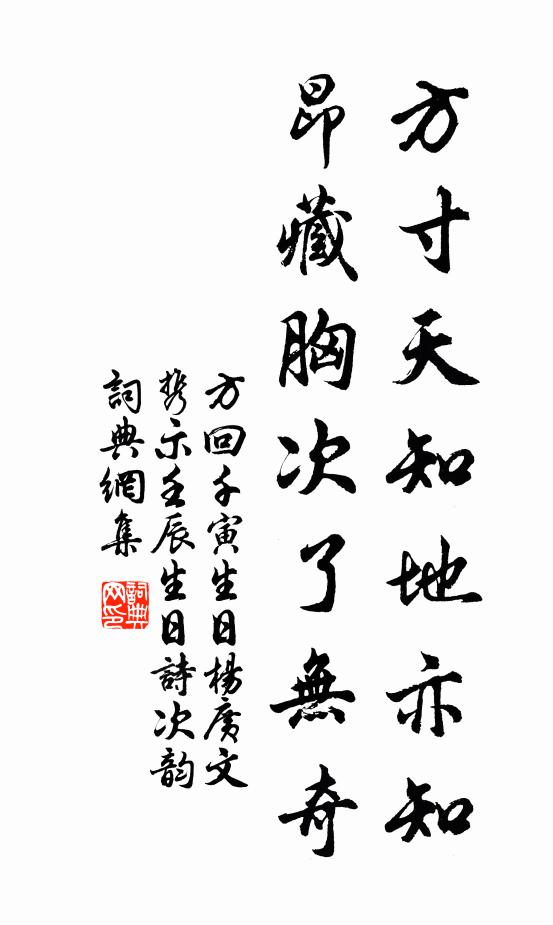 方寸天知地亦知
昂藏胸次了無奇
方回壬寅生日楊廣文
携示壬辰生日詩次韵
詞典網集
詞典网印